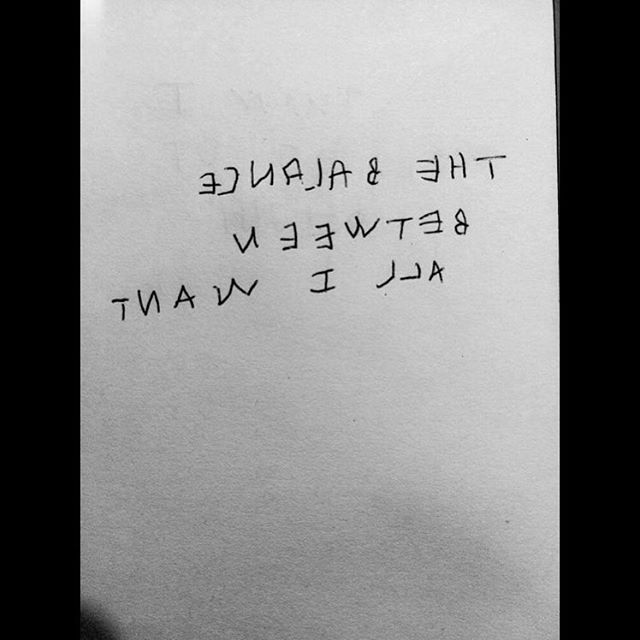 THE BALANCE
BETWEEN
ALL I WANT